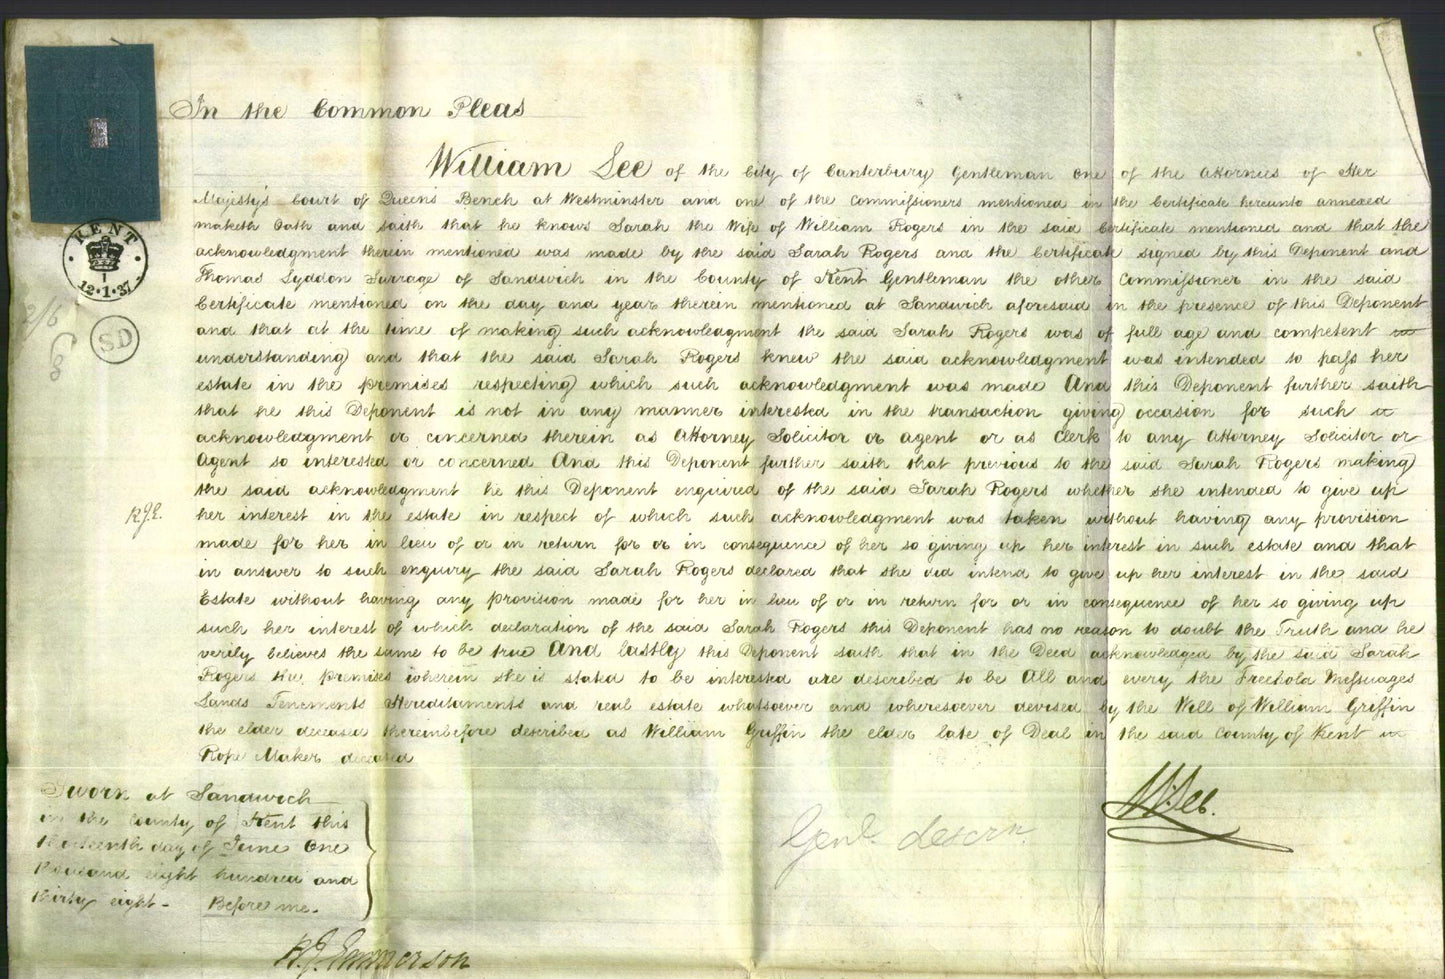 In the Common Pleas
William Lee of the City of Canterbury Gentleman One of the Attornies of Her
Majesty's Court of Queens Bench at Westminster and one of the Commissioners mentioned in the Certificate hereunto annexed
maketh Oath and saith that he knows Sarah the Wife of William Rogers in the said Certificate mentioned and that the
acknowledgment therein mentioned was made by the said Sarah Rogers and the Certificate signed by this Deponent and
Thomas Lyddon Surrage of Sandwich in the County of Kent Gentleman the other Commissioner in the said
Certificate mentioned on the day and year therein mentioned at Sandwich aforesaid in the presence of this Deponent
and that at the time of making such acknowledgment the said Sarah Rogers was of full age and competent
understanding and that the said Sarah Rogers knew the said acknowledgment was intended to pass her
estate in the premises respecting which such acknowledgment was made And this Deponent further saith
that he this Deponent is not in any manner interested in the transaction giving occasion for such
acknowledgment or concerned therein as Attorney Solicitor or agent or as Clerk to any Attorney Solicitor or
Agent so interested or concerned And this Deponent further saith that previous to the said Sarah Rogers making
the said acknowledgment he this Deponent enquired of the said Sarah Rogers whether she intended to give up
her interest in the estate in respect of which such acknowledgment was taken without having any provision
made for her in lieu of or in return for or in consequence of her so giving up her interest in such estate and that
in answer to such enquiry the said Sarah Rogers declared that she did intend to give up her interest in the said
Estate without having any provision made for her in lieu of or in return for or in consequence of her so giving up
such her interest of which declaration of the said Sarah Rogers this Deponent has no reason to doubt the Truth and he
verily believes the same to be true And lastly this Deponent saith that in the Deed acknowledged by the said Sarah
Rogers the premises wherein she is stated to be interested are described to be All and every the Freehold Messuages
Lands Tenements Hereditaments and real estate whatsoever and wheresoever devised by the Will of William Griffin
the elder deceased thereinbefore described as William Griffin the elder late of Deal in the said County of Kent
Rope Maker deceased
KENT
1
12·1·37
2/6
SD
R.J.E.
Sworn at Sandwich
in the County of Kent this
thirteenth day of June One
thousand eight hundred and
thirty eight - Before me.
R. J. Emmerson
W. Lee.
Genl. descrn.